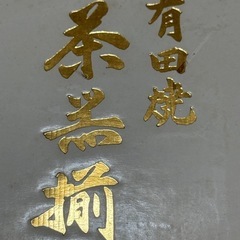 有田焼
茶器揃